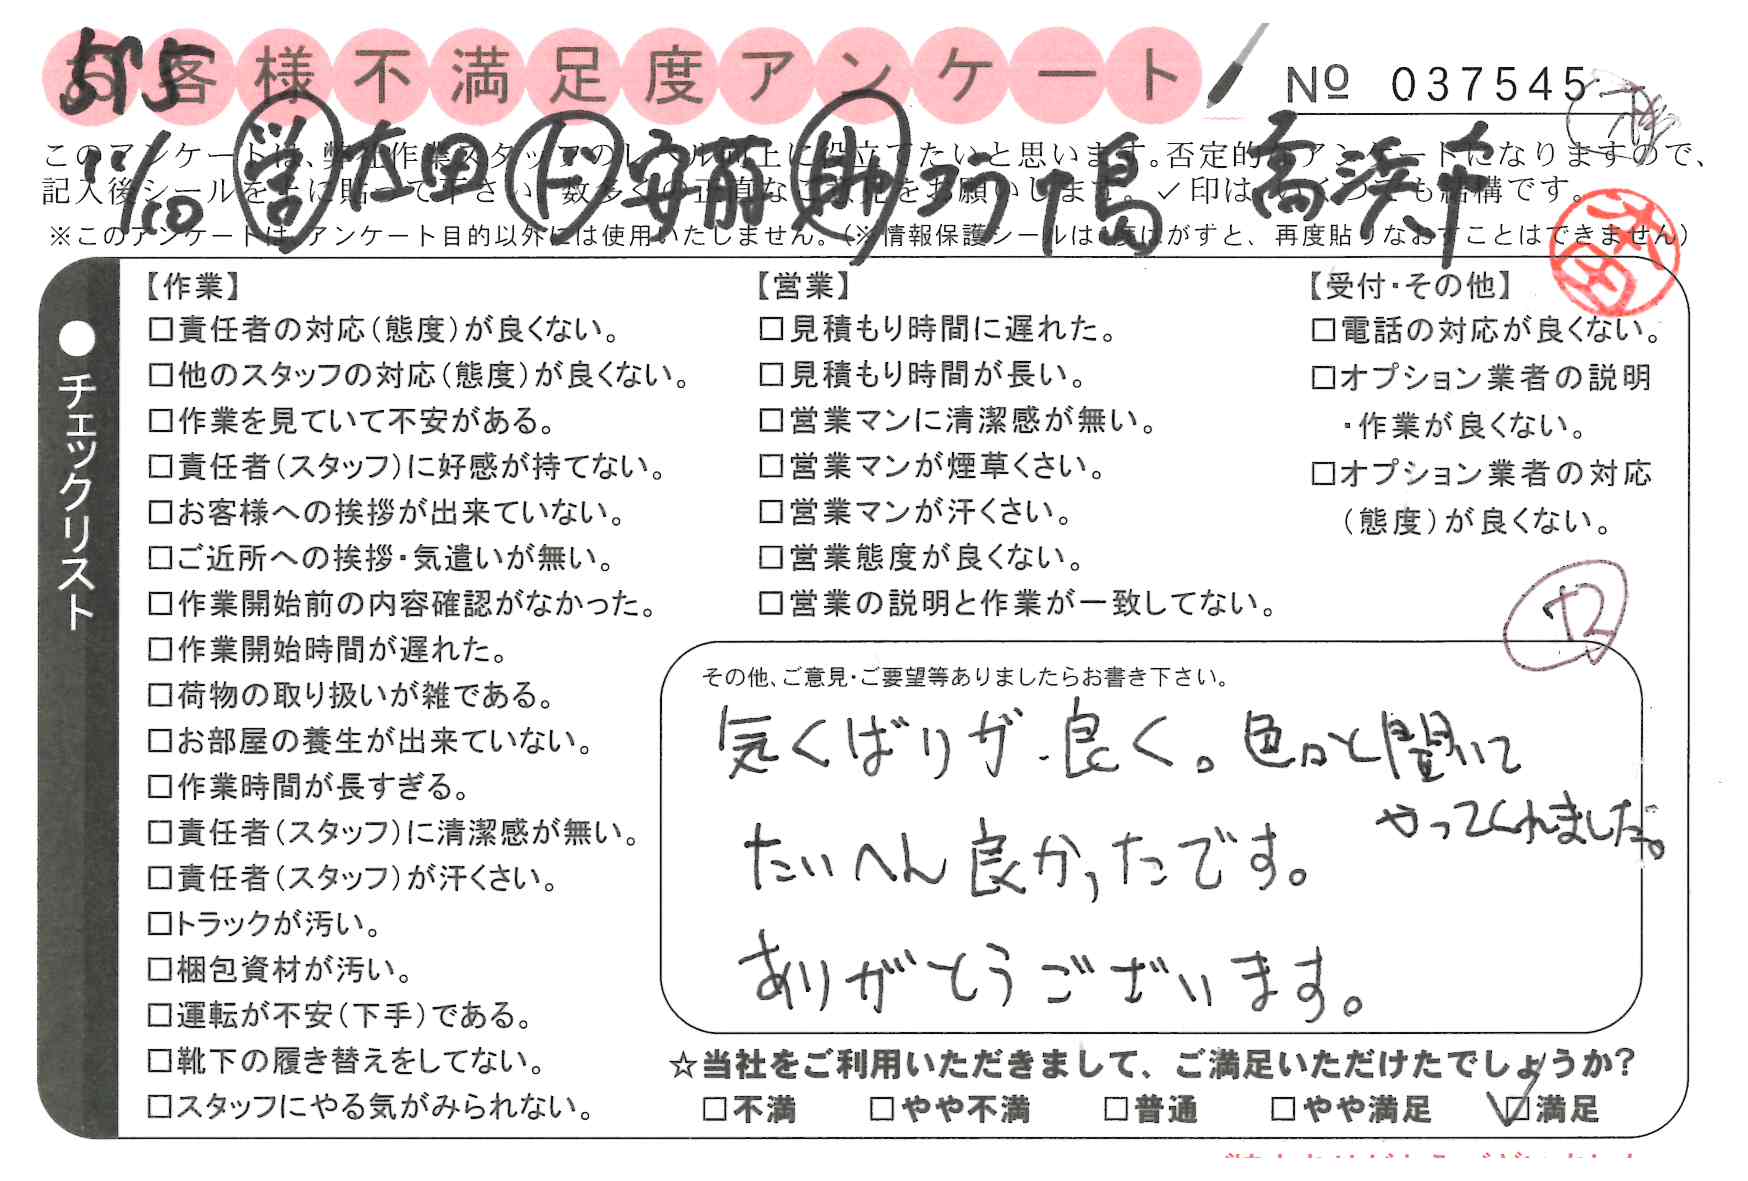 お客様不満足度アンケート
Nº 037545
このアンケートは、弊社作業スタッフのレベル向上に役立てたいと思います。否定的なアンケートになりますので、
記入後シールを上に貼って下さい。数多くの正直なご意見をお願いします。✓印は、いくつでも結構です。
※このアンケートは、アンケート目的以外には使用いたしません。(※情報保護シールは1度はがすと、再度貼りなおすことはできません)
チェックリスト
【作業】
□責任者の対応(態度)が良くない。
□他のスタッフの対応(態度)が良くない。
□作業を見ていて不安がある。
□責任者(スタッフ)に好感が持てない。
□お客様への挨拶が出来ていない。
□ご近所への挨拶・気遣いが無い。
□作業開始前の内容確認がなかった。
□作業開始時間が遅れた。
□荷物の取り扱いが雑である。
□お部屋の養生が出来ていない。
□作業時間が長すぎる。
□責任者(スタッフ)に清潔感が無い。
□責任者(スタッフ)が汗くさい。
□トラックが汚い。
□梱包資材が汚い。
□運転が不安(下手)である。
□靴下の履き替えをしてない。
□スタッフにやる気がみられない。
【営業】
□見積もり時間に遅れた。
□見積もり時間が長い。
□営業マンに清潔感が無い。
□営業マンが煙草くさい。
□営業マンが汗くさい。
□営業態度が良くない。
□営業の説明と作業が一致してない。
【受付・その他】
□電話の対応が良くない。
□オプション業者の説明
・作業が良くない。
□オプション業者の対応
(態度)が良くない。
その他、ご意見・ご要望等ありましたらお書き下さい。
気くばりが良く。色々と聞いて
やってくれました。
たいへん良かったです。
ありがとうございます。
☆当社をご利用いただきまして、ご満足いただけたでしょうか?
□不満 □やや不満 □普通 □やや満足 ☑満足